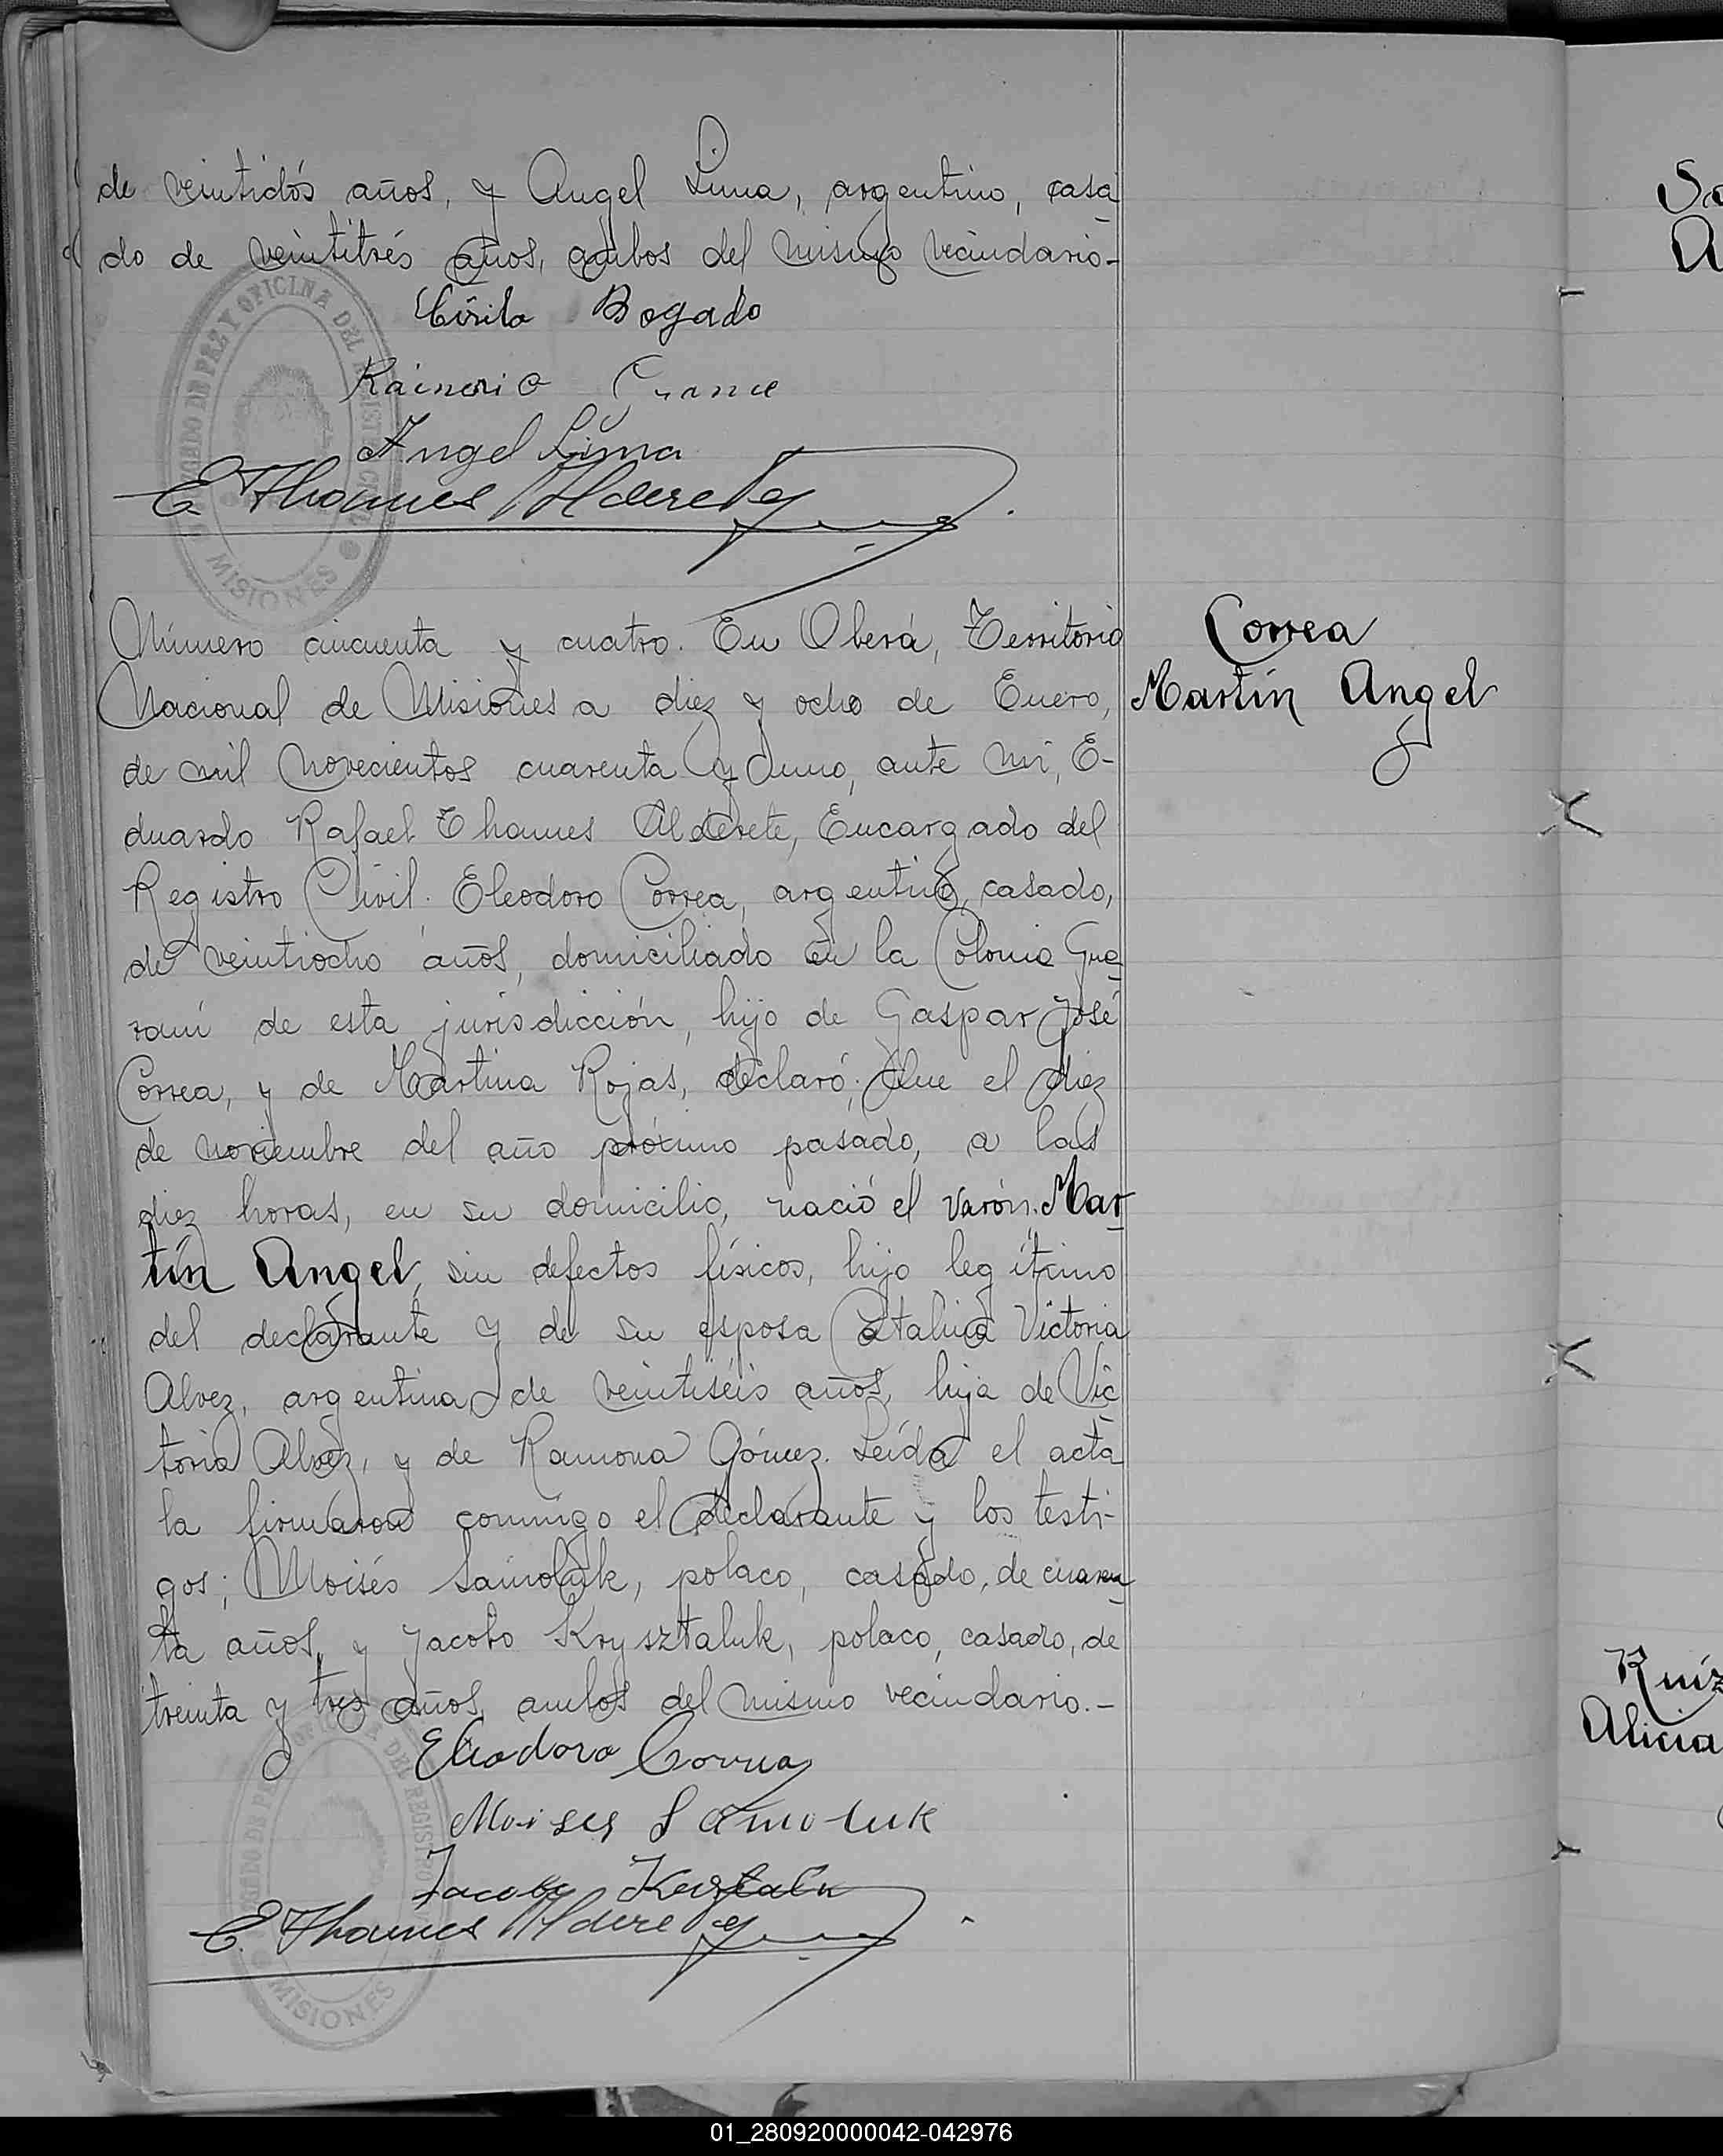 de veintidós años, y Angel Lima, argentino, casa
do de veintitrés años, ambos del mismo vecindario-
Cirilo Bogado
Rainerio
Angel Lima
E. Thames Alderete
JUZGADO DE PAZ Y OFICINA DEL REGISTRO CIVIL
MISIONES
Número cincuenta y cuatro. En Oberá, Territorio
Nacional de Misiones a diez y ocho de Enero,
de mil novecientos cuarenta y uno, ante mí, E-
duardo Rafael Thames Alderete, Encargado del
Registro Civil. Eleodoro Correa, argentino, casado,
de veintiocho años, domiciliado en la Colonia Gua
raní de esta jurisdicción, hijo de Gaspar José
Correa, y de Martina Rojas, declaró; Que el diez
de noviembre del año próximo pasado, a las
diez horas, en su domicilio, nació el varón. Mar
tín Angel, sin defectos físicos, hijo legítimo
del declarante y de su esposa Catalina Victoria
Alvez, argentina, de veintiséis años, hija de Vic
torio Alvez, y de Ramona Gómez. Leída el acta
la firmaron conmigo el declarante y los testi-
gos; Moisés Samoluk, polaco, casado, de cuaren
ta años, y Jacobo Krysztaluk, polaco, casado, de
treinta y tres años, ambos del mismo vecindario.-
Eleodoro Correa
Moises Samoluk
Jacobo
E. Thames Alderete
MISIONES
Correa
Martín Angel
Ruíz
Alicia
01_280920000042-042976